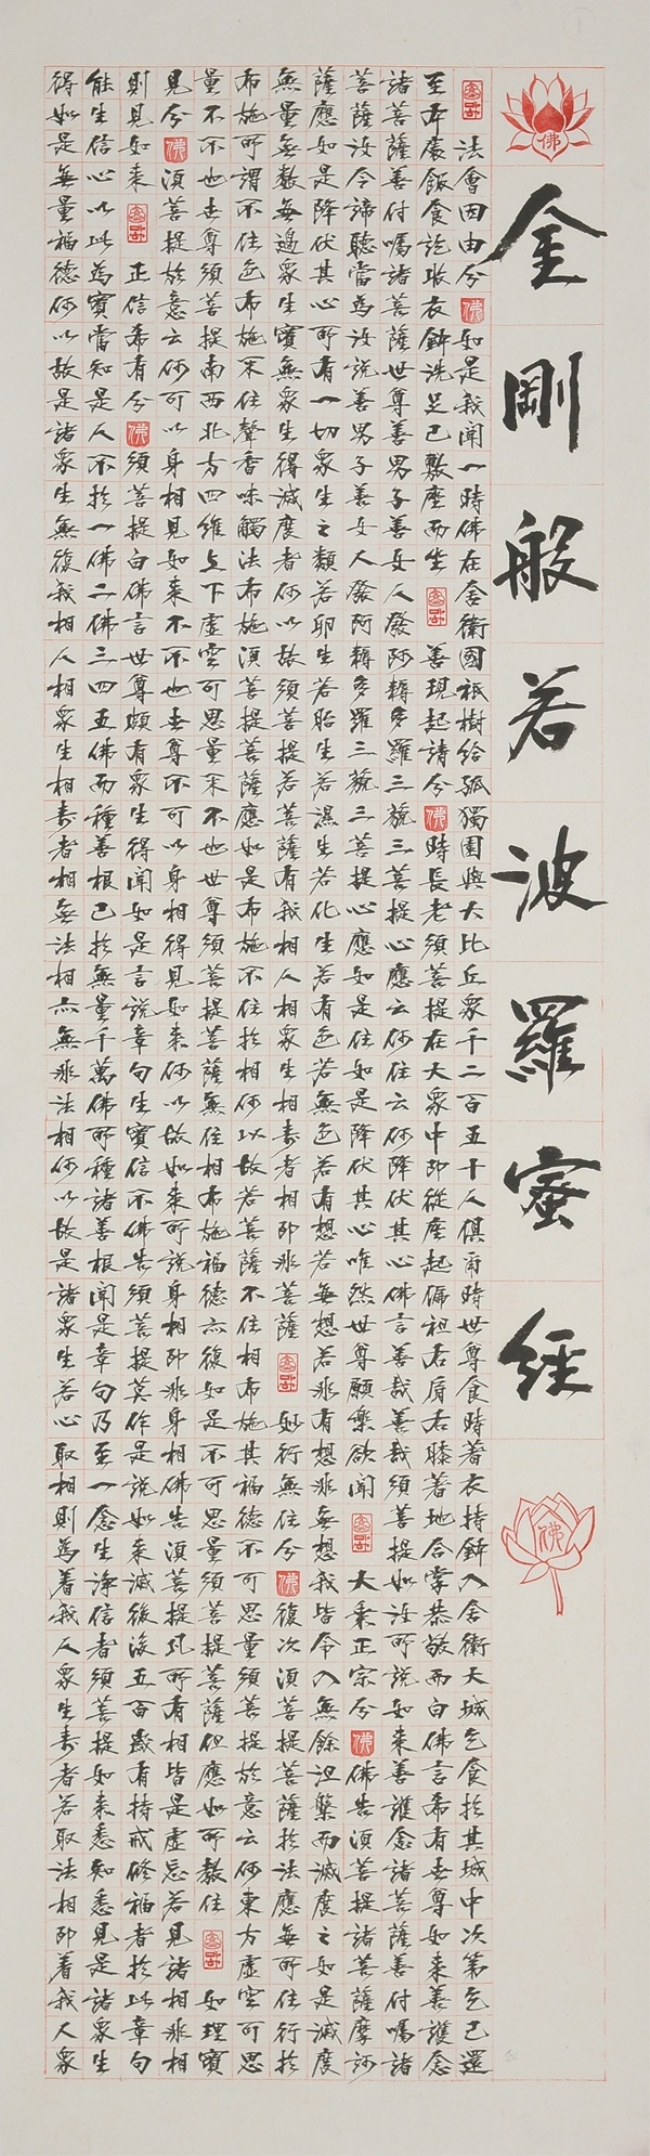 佛
金剛般若波羅蜜經
佛
法會因由分 佛 如是我聞一時佛在舍衛國祇樹給孤獨園與大比丘眾千二百五十人俱爾時世尊食時著衣持鉢入舍衛大城乞食於其城中次第乞已還
至本處飯食訖收衣鉢洗足已敷座而坐 善現起請分 佛 時長老須菩提在大眾中即從座起偏袒右肩右膝著地合掌恭敬而白佛言希有世尊如來善護念
諸菩薩善付囑諸菩薩世尊善男子善女人發阿耨多羅三藐三菩提心應云何住云何降伏其心佛言善哉善哉須菩提如汝所說如來善護念諸菩薩善付囑諸
菩薩汝今諦聽當為汝說善男子善女人發阿耨多羅三藐三菩提心應如是住如是降伏其心唯然世尊願樂欲聞 大乘正宗分 佛 佛告須菩提諸菩薩摩訶
薩應如是降伏其心所有一切眾生之類若卵生若胎生若濕生若化生若有色若無色若有想若無想若非有想非無想我皆令入無餘涅槃而滅度之如是滅度
無量無數無邊眾生實無眾生得滅度者何以故須菩提若菩薩有我相人相眾生相壽者相即非菩薩 妙行無住分 佛 復次須菩提菩薩於法應無所住行於
布施所謂不住色布施不住聲香味觸法布施須菩提菩薩應如是布施不住於相何以故若菩薩不住相布施其福德不可思量須菩提於意云何東方虛空可思
量不不也世尊須菩提南西北方四維上下虛空可思量不不也世尊須菩提菩薩無住相布施福德亦復如是不可思量須菩提菩薩但應如所教住 如理實
見分 佛 須菩提於意云何可以身相見如來不不也世尊不可以身相得見如來何以故如來所說身相即非身相佛告須菩提凡所有相皆是虛妄若見諸相非相
則見如來 正信希有分 佛 須菩提白佛言世尊頗有眾生得聞如是言說章句生實信不佛告須菩提莫作是說如來滅後後五百歲有持戒修福者於此章句
能生信心以此為實當知是人不於一佛二佛三四五佛而種善根已於無量千萬佛所種諸善根聞是章句乃至一念生淨信者須菩提如來悉知悉見是諸眾生
得如是無量福德何以故是諸眾生無復我相人相眾生相壽者相無法相亦無非法相何以故是諸眾生若心取相則為著我人眾生壽者若取法相即著我人眾